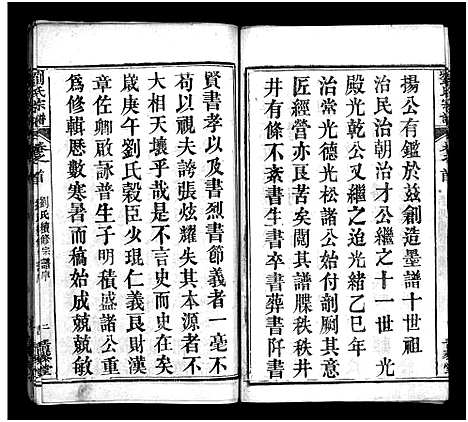 揚公有鑑於兹創造墨譜十世祖
治民治朝治才公繼之十一世光
殿光乾公又繼之迨光緒乙巳年
匠經營於始付剞劂其意
井有條不紊書生書卒書葬書阡書
賢書孝以及書烈書節義者一毫不
苟以視夫誇張炫耀失其本源者不
大相天壤乎哉是不言史而史在矣
歲庚午劉氏穀臣火焜仁義艮財漢
章佐卿敢詠普生子明積盛諸公重
為修輯歷數寒暑而稿始成兢兢敏
劉氏宗譜
卷之首
劉氏續修宗譜序
二